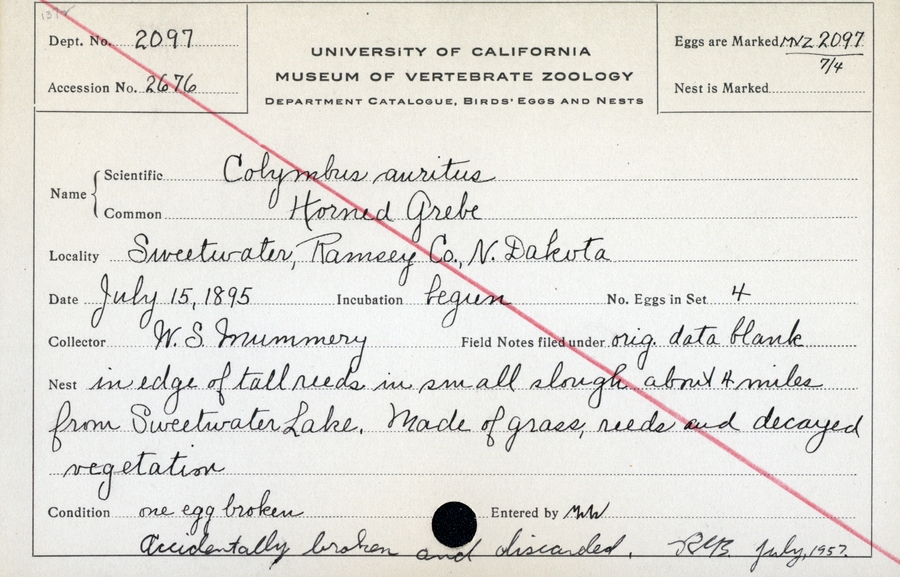 1372
Dept. No. 2097
Accession No. 2676
UNIVERSITY OF CALIFORNIA
MUSEUM OF VERTEBRATE ZOOLOGY
DEPARTMENT CATALOGUE, BIRDS' EGGS AND NESTS
Eggs are Marked MVZ 2097
7/4
Nest is Marked
Name
Scientific Colymbus auritus
Common Horned Grebe
Locality Sweetwater, Ramsey Co., N. Dakota
Date July 15, 1895 Incubation begun No. Eggs in Set 4
Collector W. S. Mummery Field Notes filed under orig. data blank
Nest in edge of tall reeds in small slough about 4 miles
from Sweetwater Lake. Made of grass, reeds and decayed
vegetation
Condition one egg broken Entered by
Accidentally broken and discarded. July, 1957.